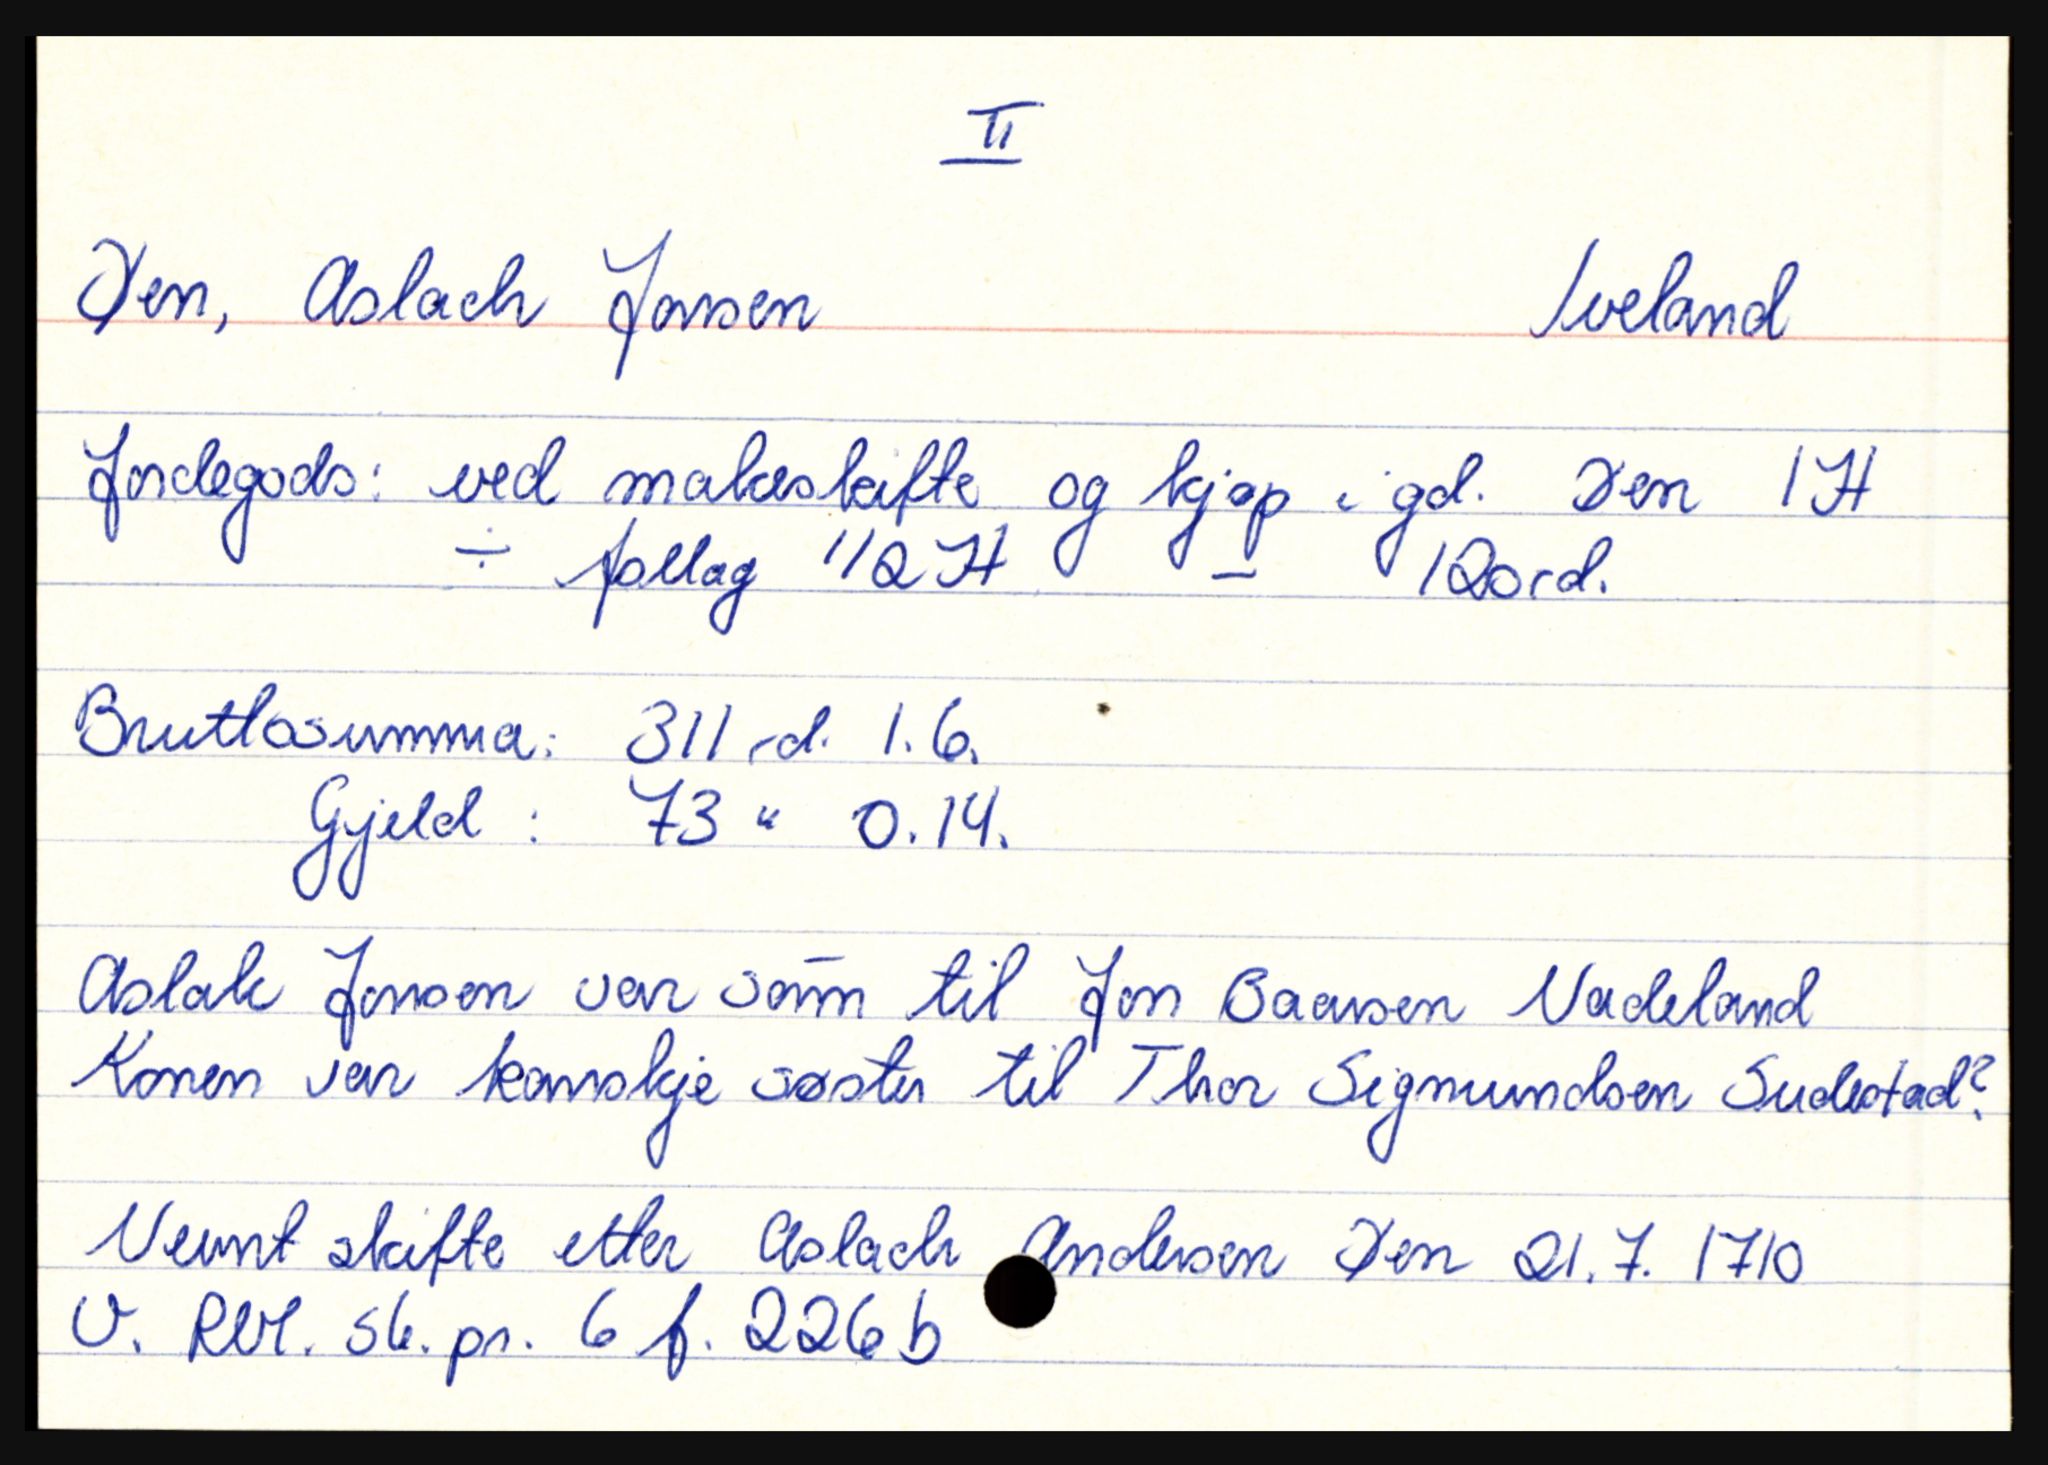 II
Den, Aslach Jonsen Iveland
Jordegods: ved makeskifte og kjøp i gd. Den 1 H
÷ follag 1/2 H – 120 rd.
Bruttosumma: 311 rd. 1.6.
Gjeld : 73 " 0.14.
Aslak Jonsen var sønn til Jon Baarsen Vadeland
Konen var kanskje søster til Thor Sigmundsen Sudestad?
Nevnt skifte etter Aslach Andersen Den 21.7. 1710
V. Rbl. sk. pr. 6 f. 226 b